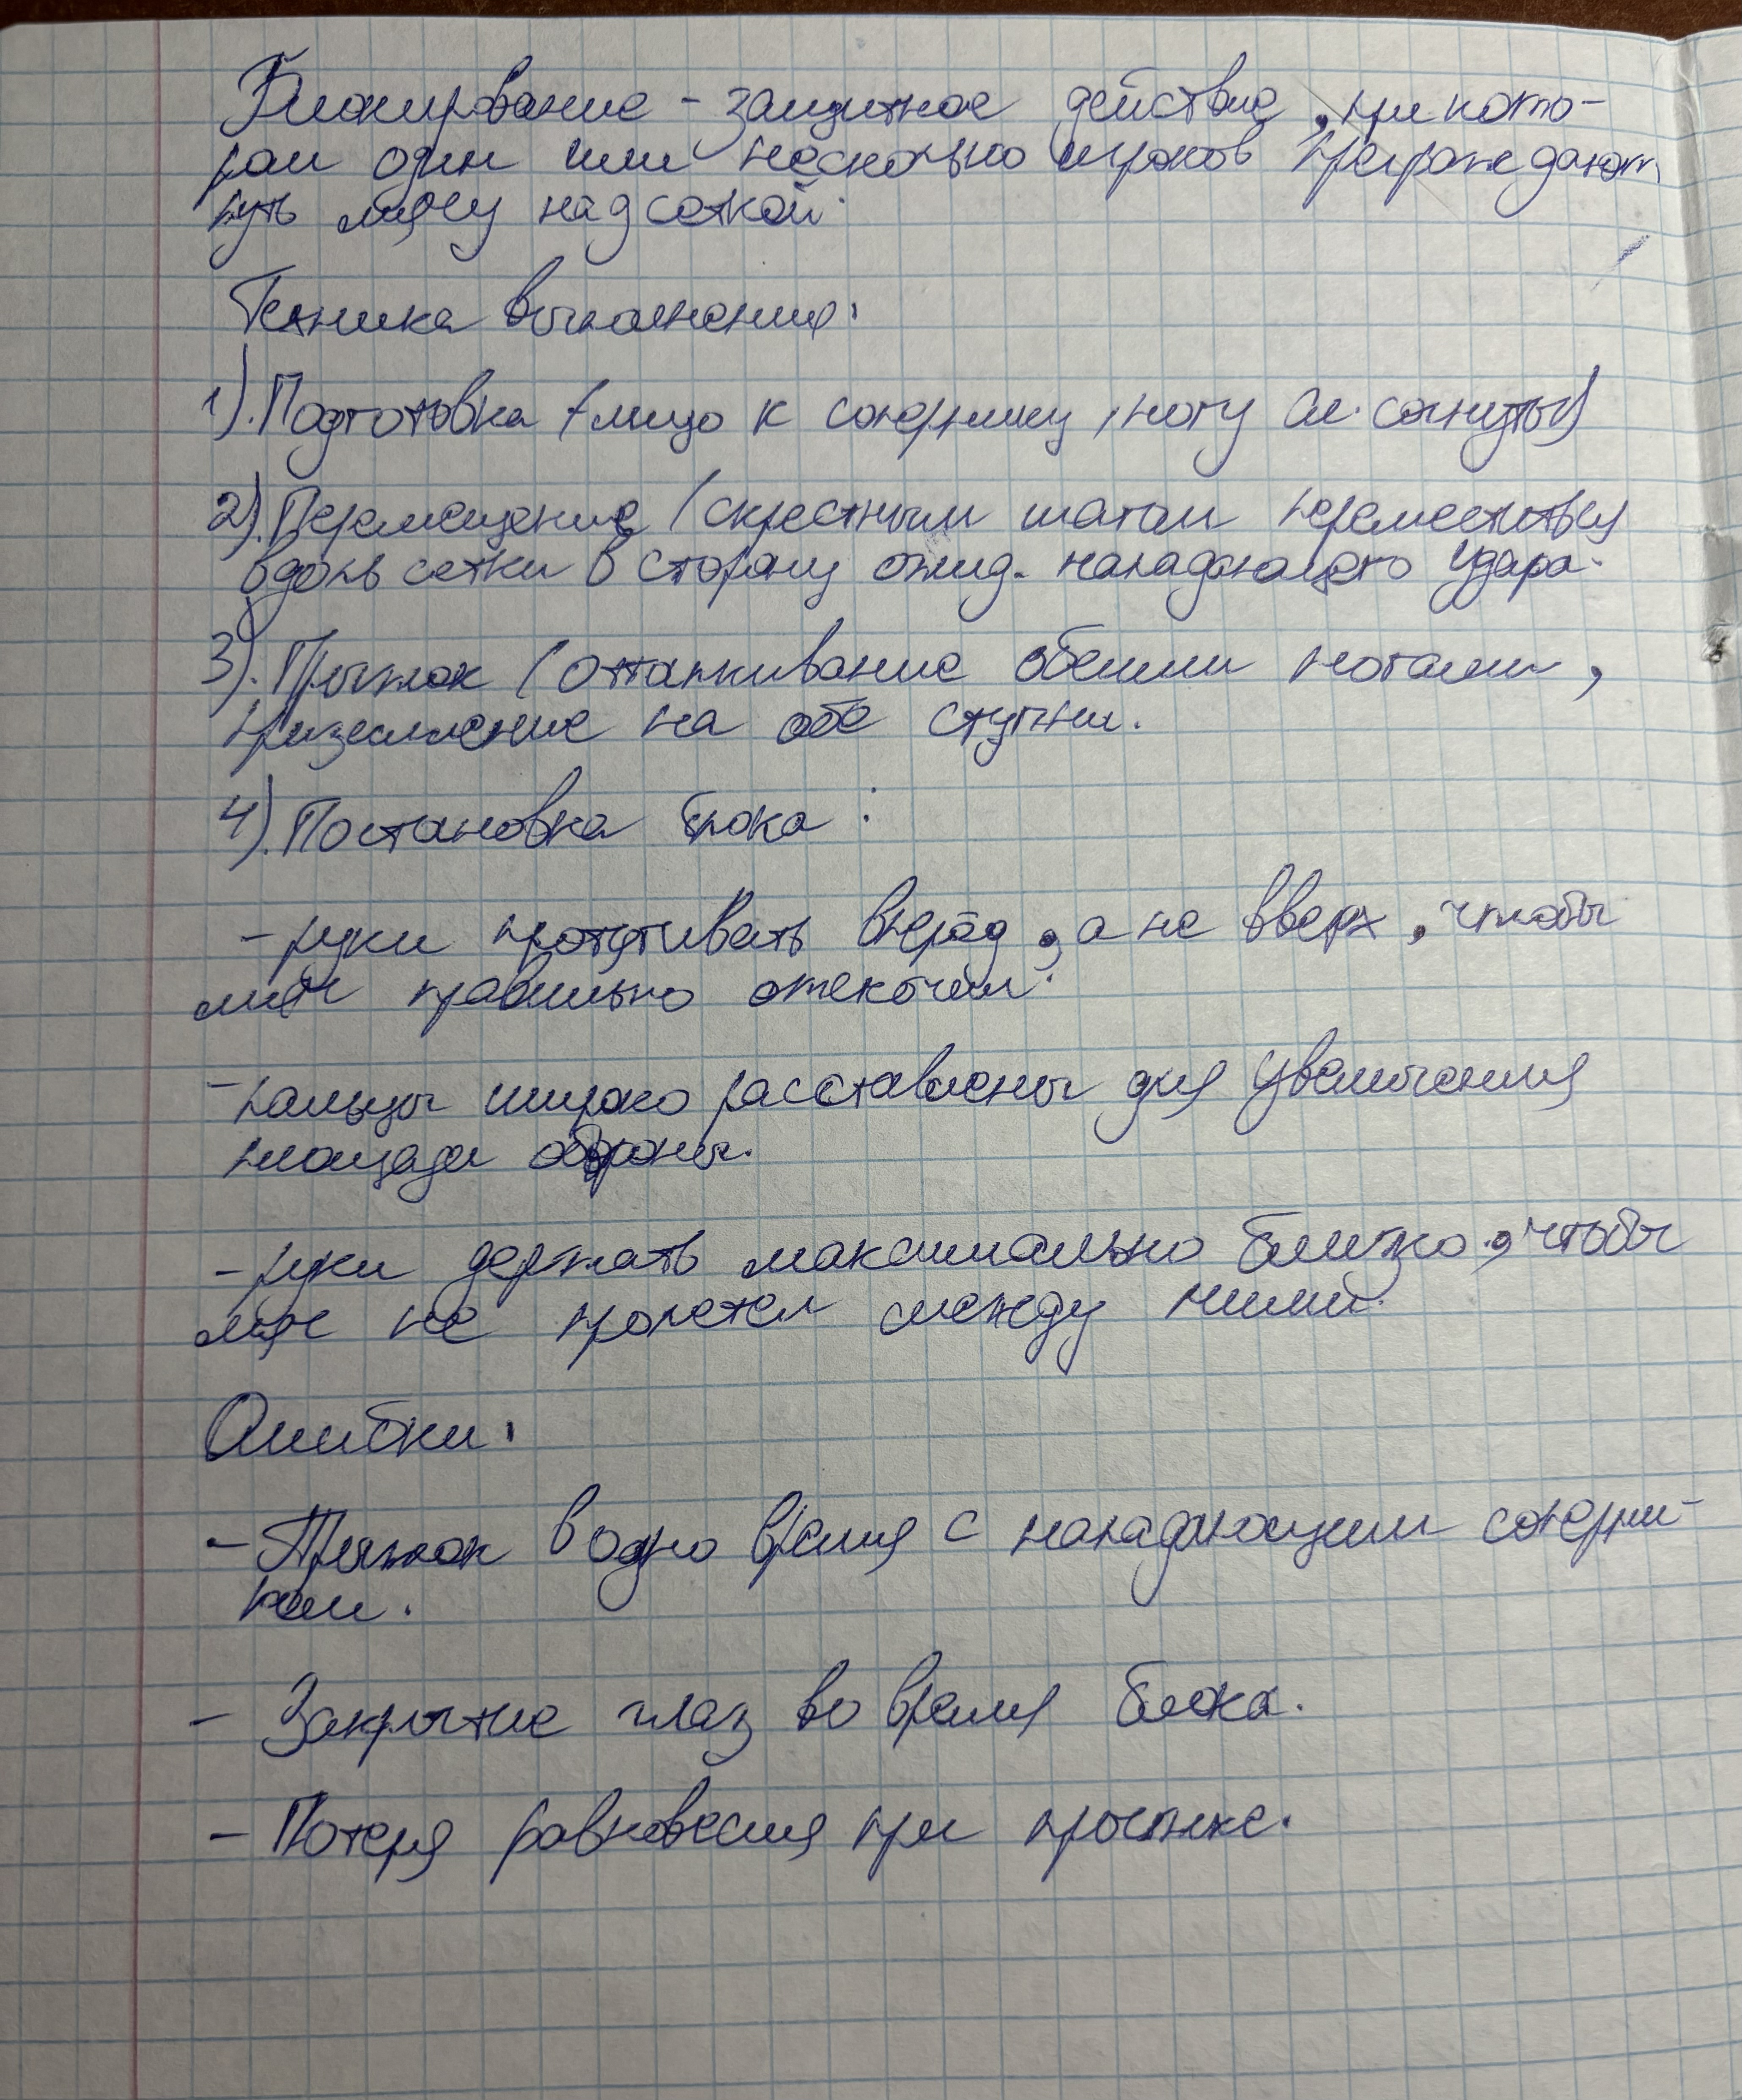 Блокирование - защитное действие, при кото-
ром один или несколько игроков преграждают
путь мячу над сеткой.
Техника выполнения:
1). Подготовка (лицо к сопернику, ногу сл. согнуты)
2). Перемещение (скрестным шагом переместиться
вдоль сетки в сторону ожид. нападающего удара.
3). Прыжок (отталкивание обеими ногами,
приземление на обе ступни.
4). Постановка блока:
- руки протягивать вперёд, а не вверх, чтобы
мяч правильно отскочил.
- пальцы широко расставлены для увеличения
площади обороны.
- руки держать максимально близко, чтобы
мяч не пролетел между ними.
Ошибки:
- Прыжок в одно время с нападающим соперни-
ком.
- Закрытие глаз во время блока.
- Потеря равновесия при прыжке.